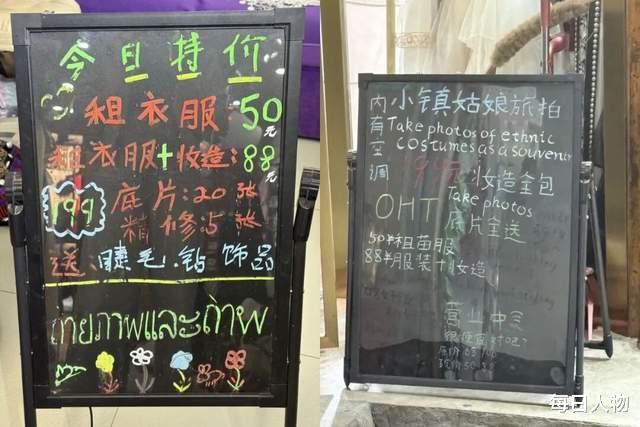 今日特价
租衣服:50元
租衣服+妆造:88元
199
底片:20张
精修5张
送:睫毛.钻 饰品
ถ่ายภาพและถ่าพ
内有空调
小镇姑娘旅拍
Take photos of ethnic
costumes as a souvenir
199元:妆造全包
OHT
Take photos
底片全送
50¥租苗服
88¥服装+妆造
营业中
很便宜对吧?
每日人物